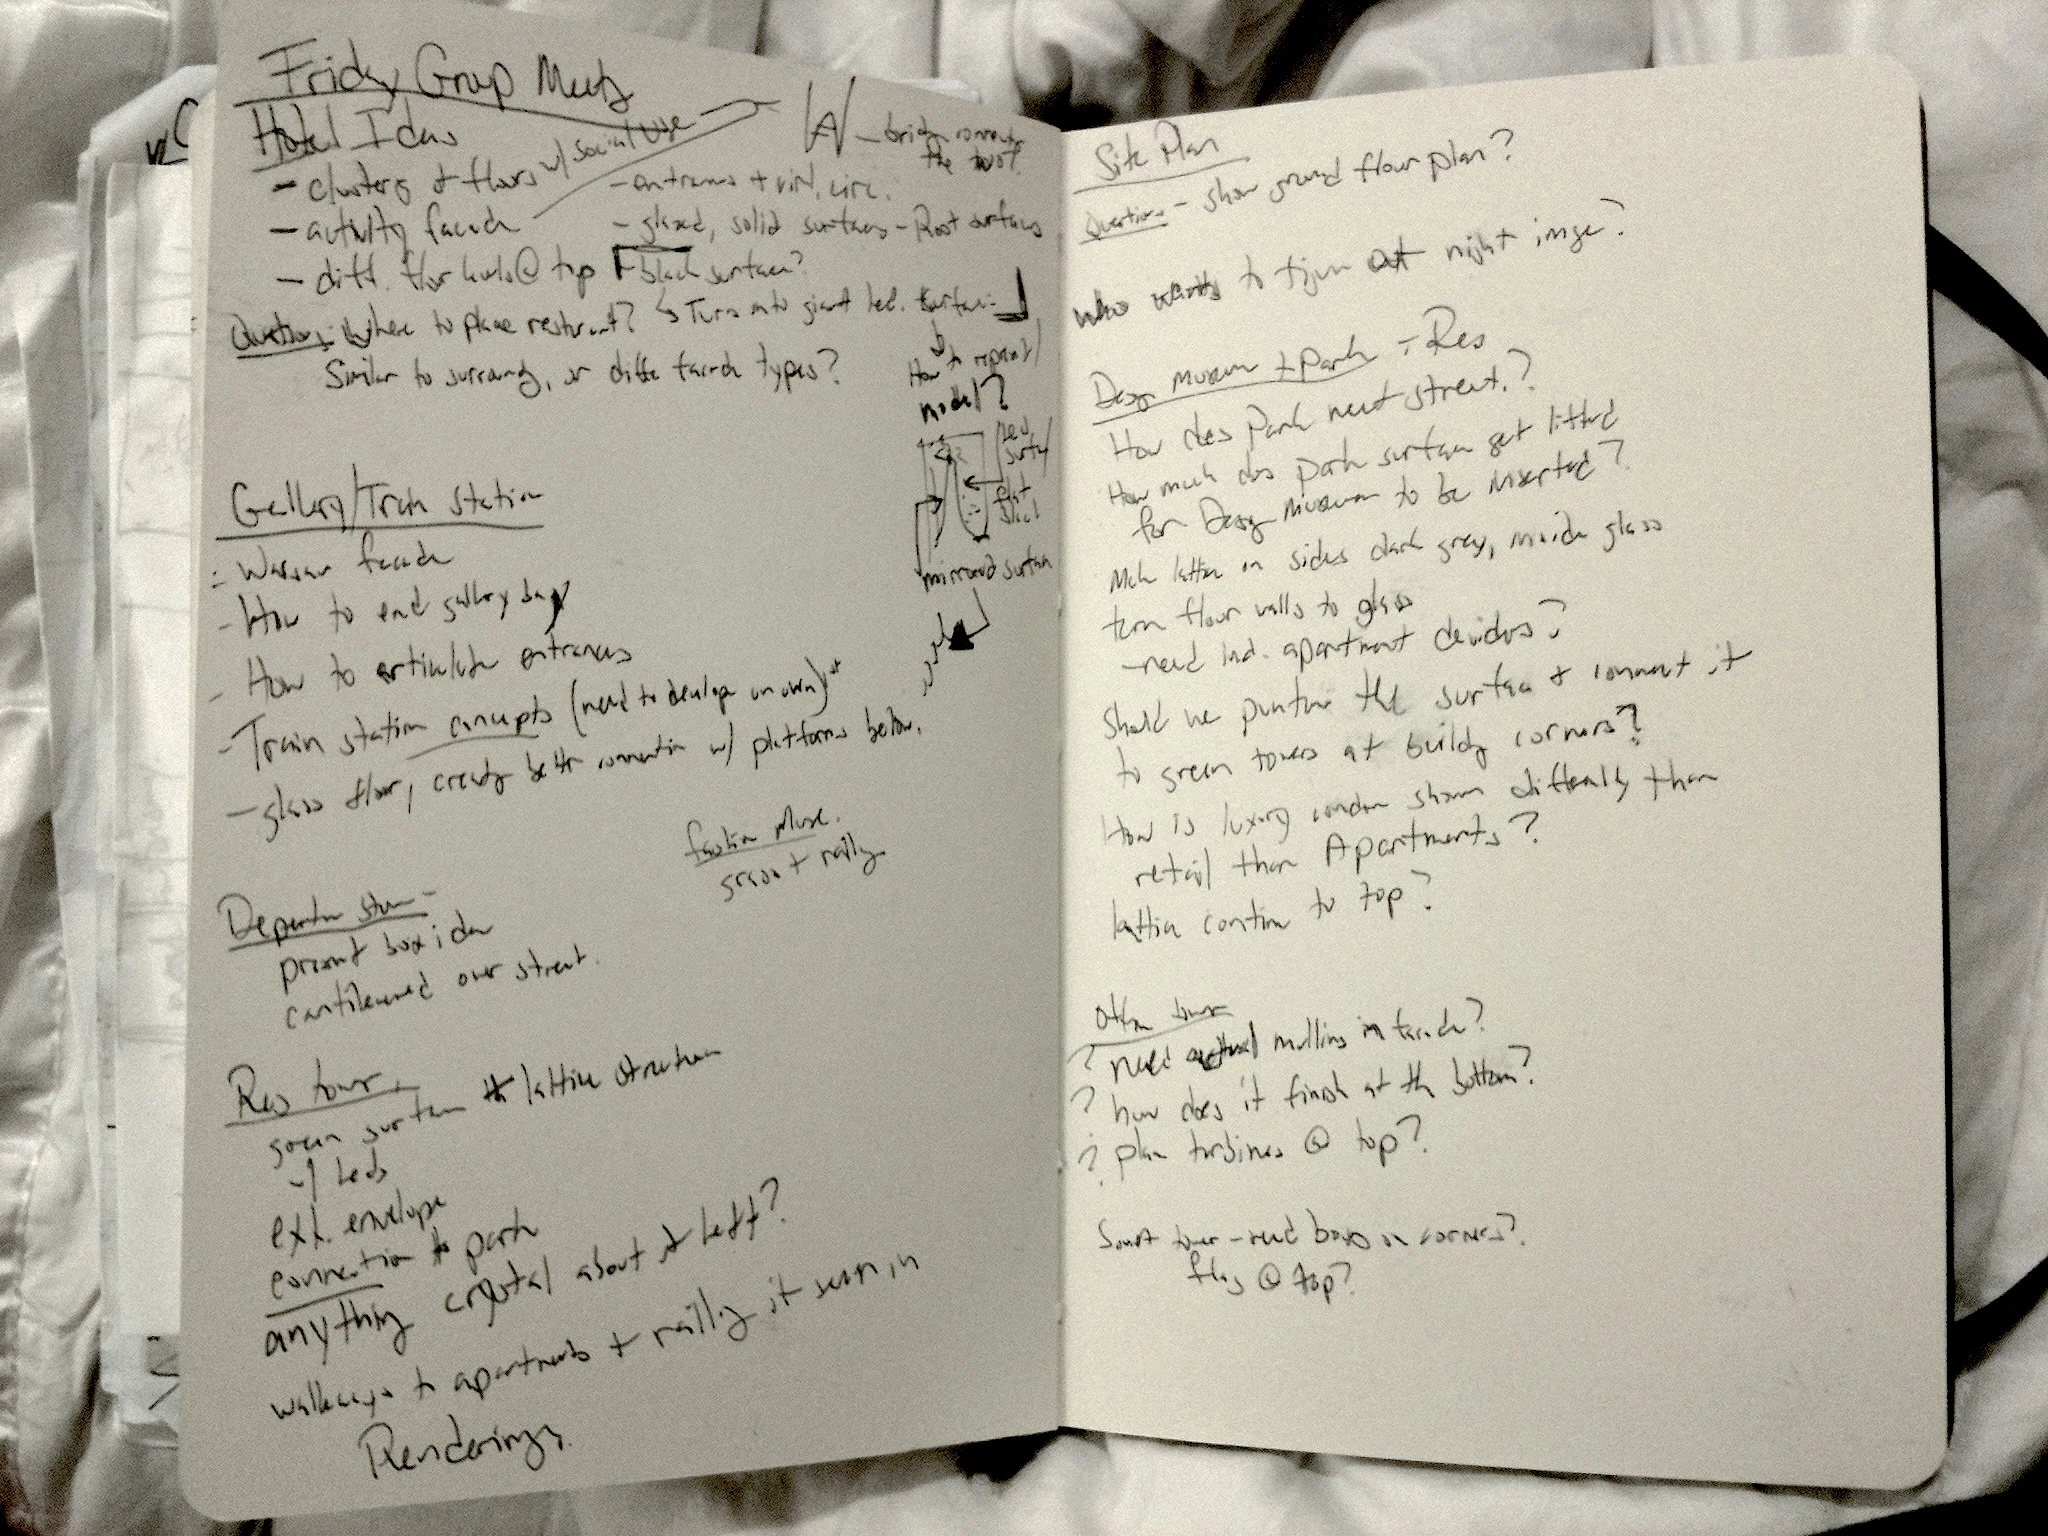 Friday Group Meets
Hotel Ideas
- clustering of floors w/ social use
- activity facade
- diff. floor levels @ top
- bridge connects
the two?
- entrances + vert. circ.
- glazed, solid surfaces - Root surfaces
- black surface?
↳ Turn into giant led. surface
Question: Where to place restaurant?
Similar to surroundg, or diffe facade types?
How to represent/
model?
led
surface
mirrored surface
Gallery/Train Station
- Warsaw facade
- How to end gallery bay
- How to articulate entrances
- Train station concepts (need to develop on own)
- glass floor, creatg better connection w/ platforms below.
grass + railg
Department store -
present box idea
cantilevered over street.
Res tower.
green surface lattice structure
w/ leds
ext. envelope
connection to park
anything crystal about it left?
walkways to apartments + railg it seen in
Renderings.
Site Plan
Question - show ground floor plan?
who wants to figure out night image?
Design Museum + Park - Res
How does Park meet street.?
How much does park surface get lifted
for Design Museum to be inserted?
Make lattice on sides dark grey, inside glass
turn floor walls to glass
- need ind. apartment deviders?
Should we puncture the surface + connect it
to green towers at buildg corners?
How is luxury condos shown differently than
retail than Apartments?
lattice continue to top?
Office tower
? need actual mullins in facade?
? how does it finish at the bottom?
? plan turbines @ top?
tower - need boxes on corners?
flag @ top?